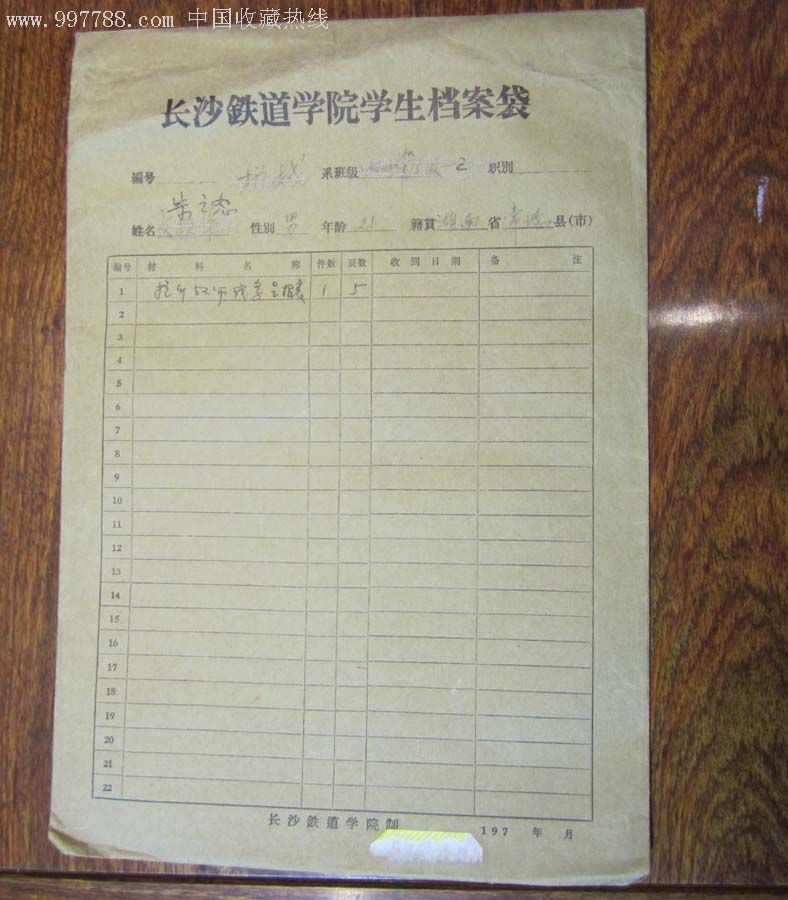 www.997788.com 中国收藏热线
长沙鉄道学院学生档案袋
编号 系班级 2 职别
姓名 朱之 性别 男 年龄 21 籍貫 湖南 省 常德 县(市)
编号 材料名称 件数 页数 收到日期 备注
1 呈报表 1 5
2
3
4
5
6
7
8
9
10
11
12
13
14
15
16
17
18
19
20
21
22
长沙鉄道学院制 197 年 月